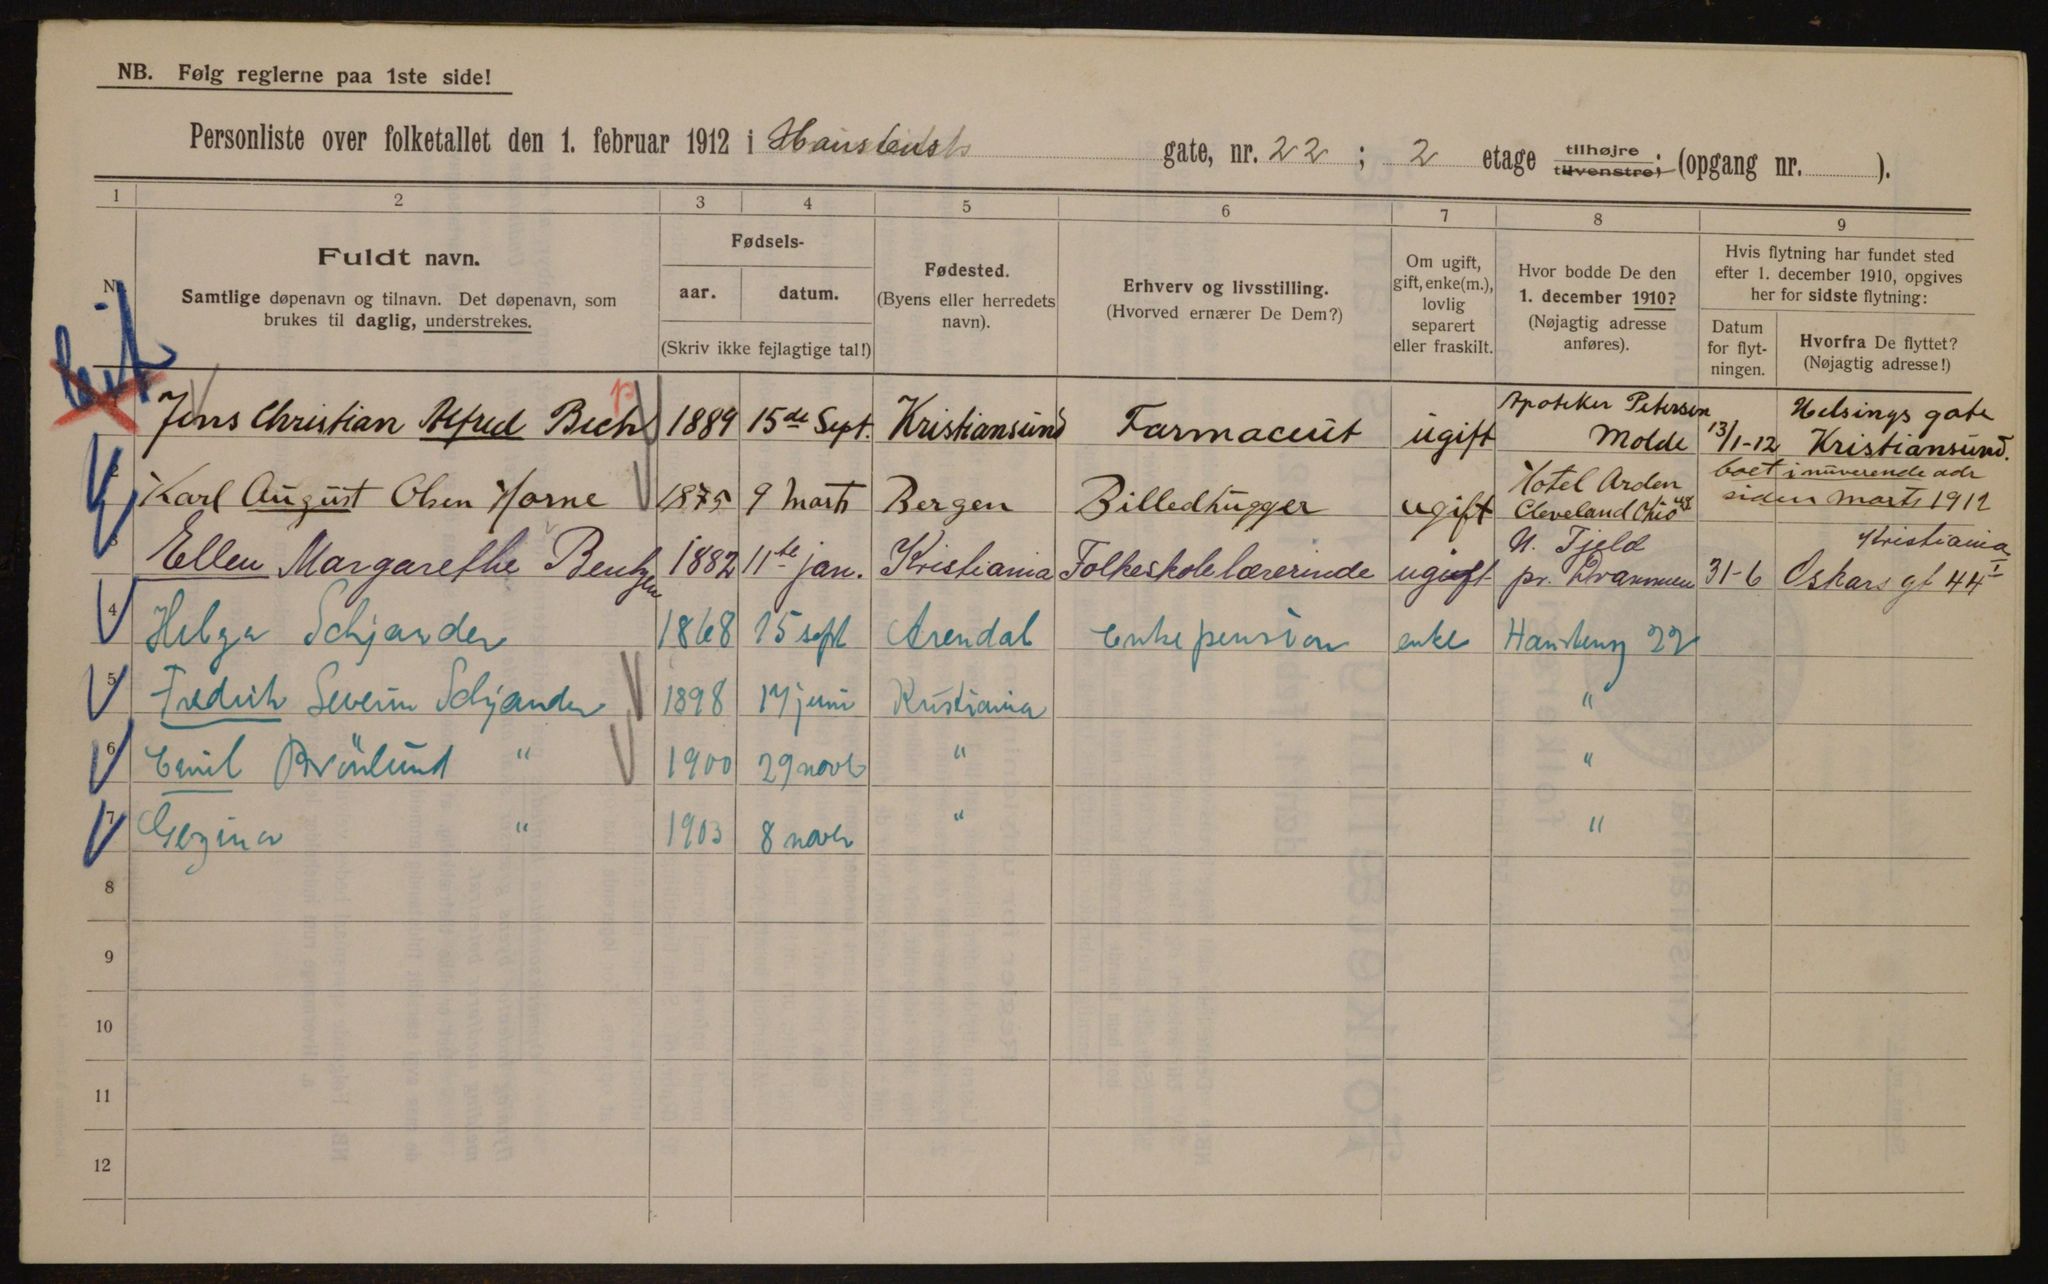 NB. Følg reglerne paa 1ste side!
Personliste over folketallet den 1. februar 1912 i Haustensts gate, nr. 22 ; 2 etage tilhøjre tilvenstre; (opgang nr. ).
1 2 3 4 5 6 7 8 9
Fuldt navn.
Samtlige døpenavn og tilnavn. Det døpenavn, som
brukes til daglig, understrekes.
Fødsels-
aar. datum.
(Skriv ikke fejlagtige tal!)
Fødested.
(Byens eller herredets
navn).
Erhverv og livsstilling.
(Hvorved ernærer De Dem?)
Om ugift,
gift, enke(m.),
lovlig
separert
eller fraskilt.
Hvor bodde De den
1. december 1910?
(Nøjagtig adresse
anføres).
Hvis flytning har fundet sted
efter 1. december 1910, opgives
her for sidste flytning:
Datum
for flyt-
ningen.
Hvorfra De flyttet?
(Nøjagtig adresse!)
Jens Christian Alfred Bech 1889 15de Sept. Kristiansund Farmaceut ugift Apoteker Petersen Molde 13/1-12 Helsings gate Kristiansund.
Karl August Olsen Horne 1875 9 Marts Bergen Billedhugger ugift Hotel Arden Cleveland Ohio boet i nuverende adr siden Marts 1912
3 Ellen Margarethe Bentzen 1882 11te jan. Kristiania Folkeskolelærerinde ugift N. Fjeld pr. Drammen 31-6 Kristiania Oskars gt 44 I
4 Helga Schjander 1868 15 sept Arendal Enkepension enke Haustensg 22
5 Fredrik Severin Schjander 1898 17 juni Kristiania "
6 Emil Brönlund " 1900 29 novb " "
7 Gezina " 1903 8 novb " "
8
9
10
11
12